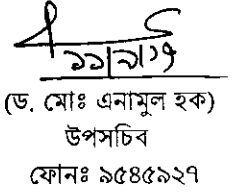 ১১|৯|১৭
(ড. মোঃ এনামুল হক)
উপসচিব
ফোনঃ ৯৫৪৫৯২৭